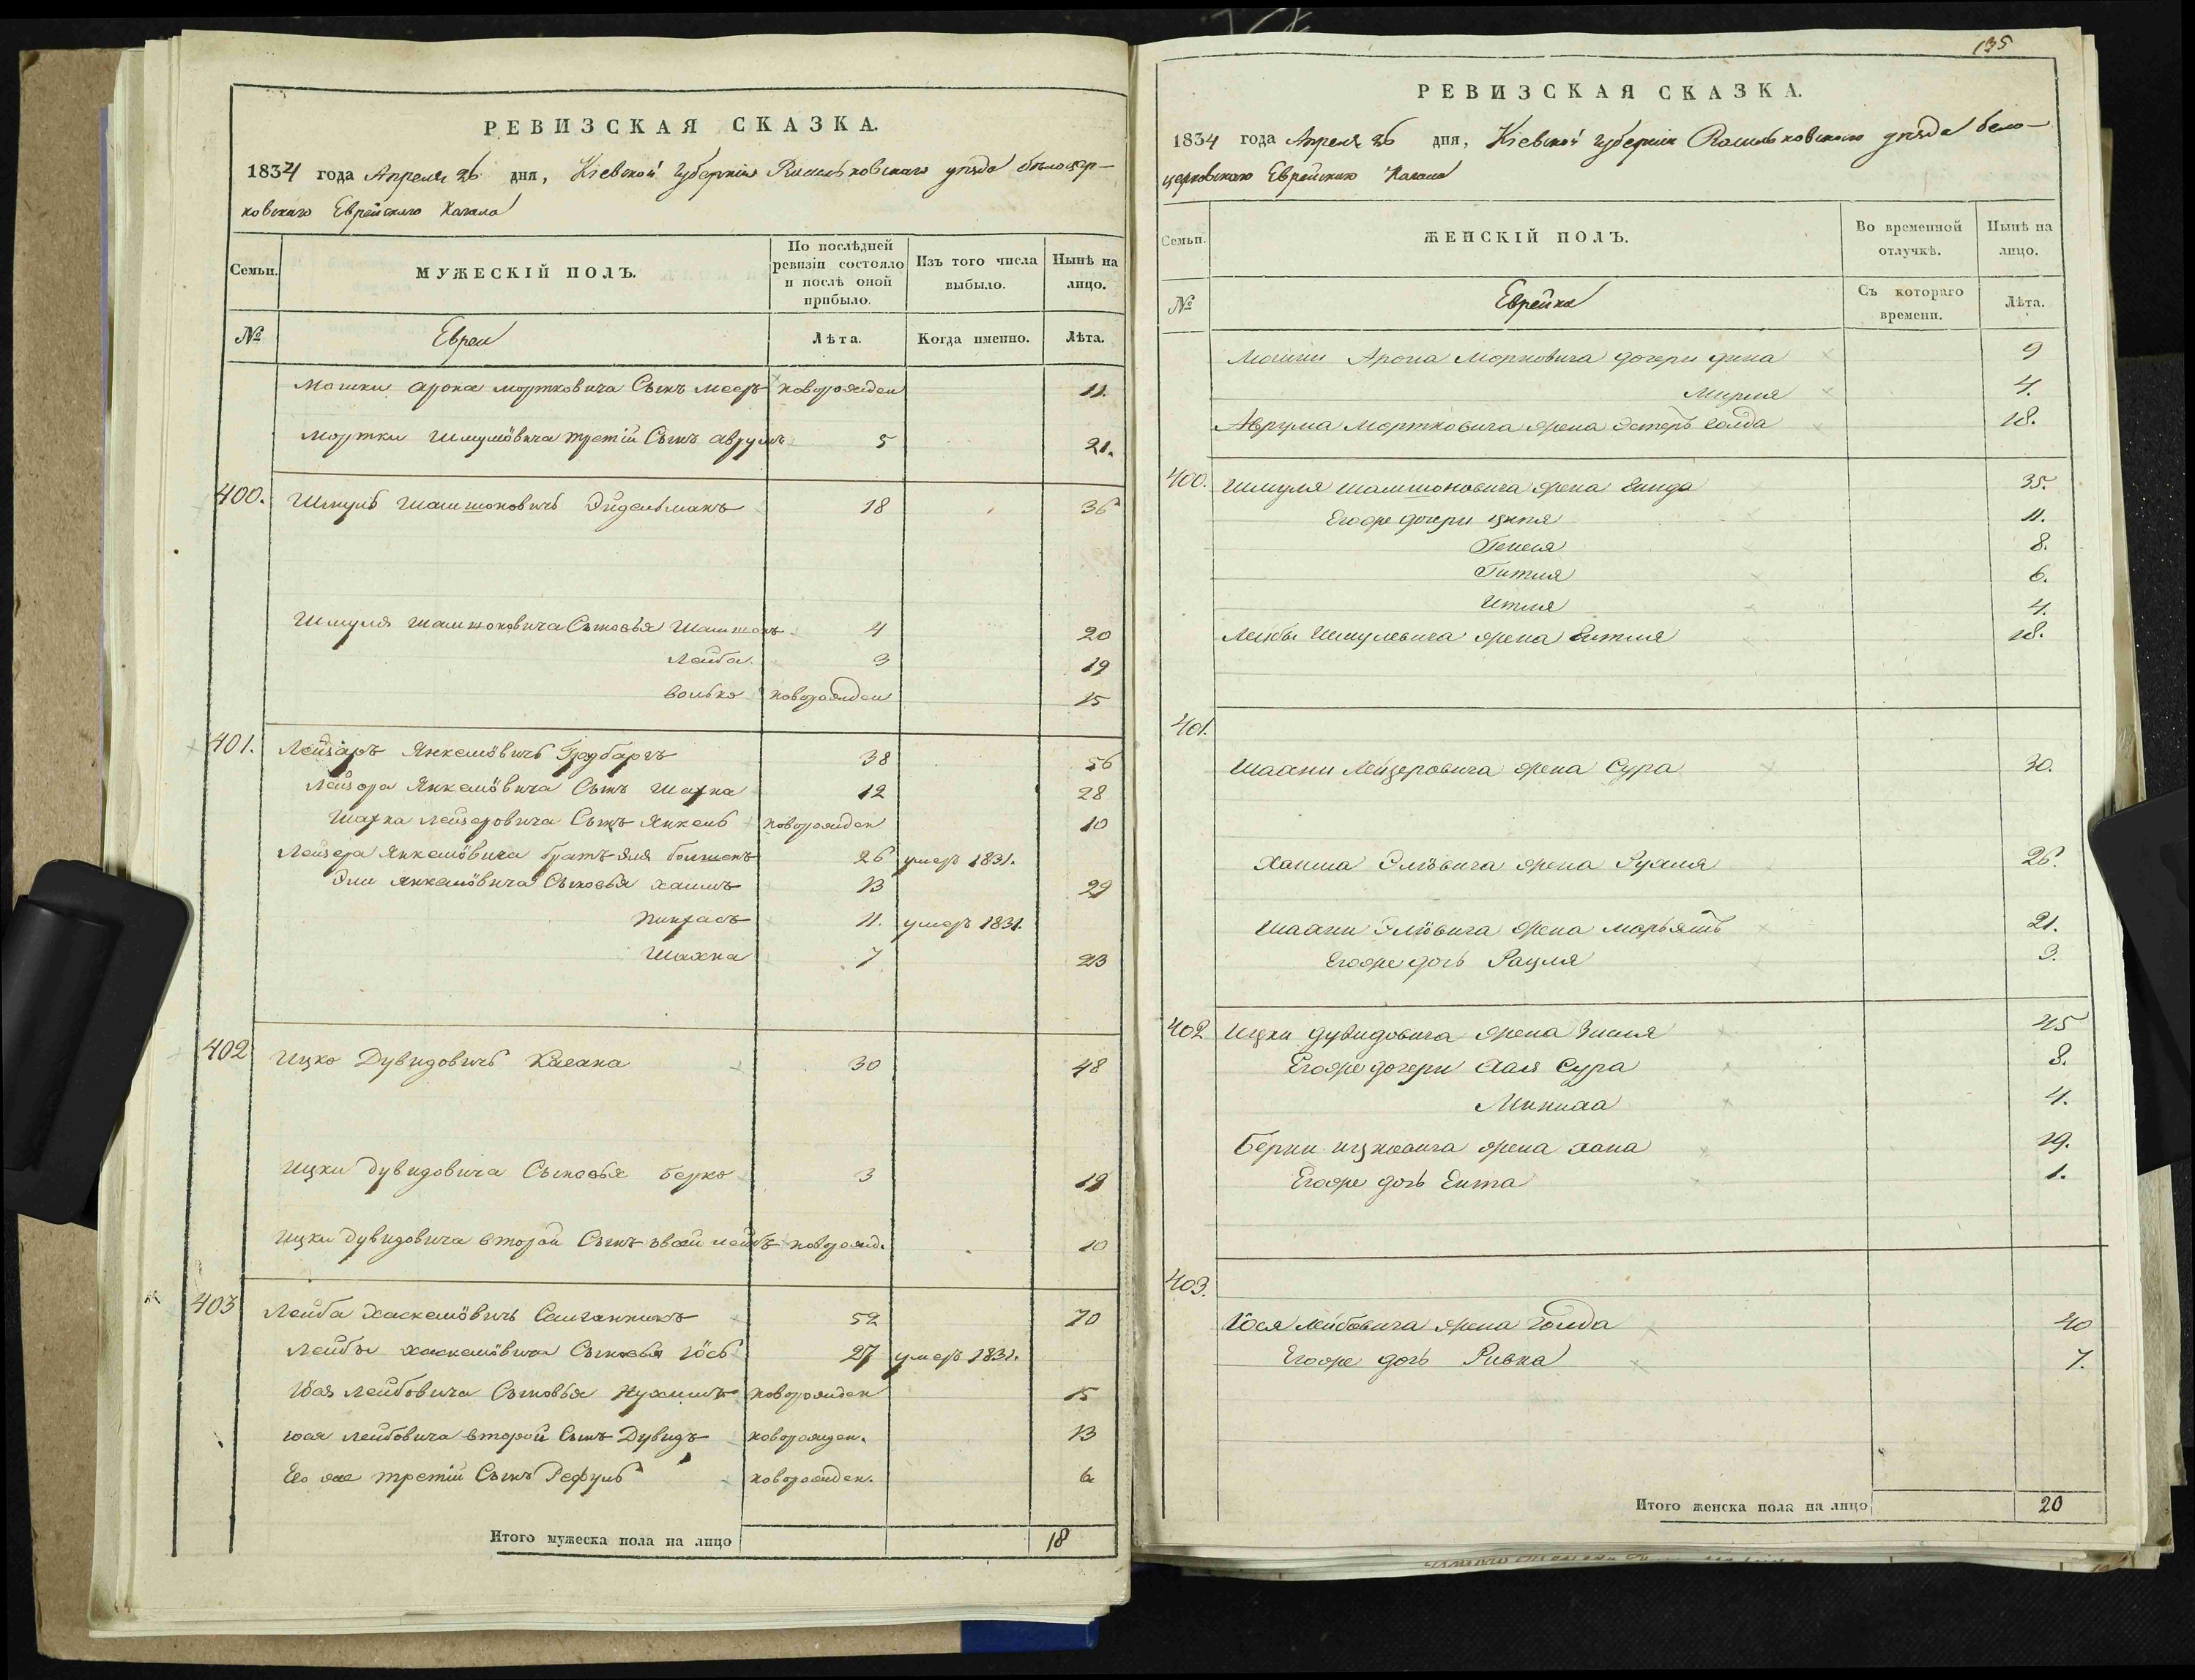 РЕВИЗСКАЯ СКАЗКА.
1834 года Апреля 26 дня, Кіевской Губерніи Васильковскаго уезда белоцер-
ковскаго Еврейскаго Кагала
Семьи.
МУЖЕСКІЙ ПОЛЪ.
По послѣдней ревизіи состояло и послѣ оной прибыло.
Изъ того числа выбыло.
Нынѣ на лицо.
№
Евреи
Лѣта.
Когда именно.
Лѣта.
Мошки Арона Мортковича Сынъ Мееръ новорожден 11.
Мортки Шмулёвича третій Сынъ Аврумъ 5 21.
400. Шмуль Шамшоновичь Эйдельманъ 18 36
Шмуля Шамшоновича Сыновья Шамшонъ 4 20
Лейба 3 19
Волько новорожден 15
401. Лейзаръ Янкелёвичь 38 56
Лейзора Янкелёвича Сынъ Шахна 12 28
Шахна Лейзеровича Сынъ Янкель новорожден 10
Лейзера Янкелёвича братъ Эля 26 умеръ 1831.
Эли Янкелёвича Сыновья Хаимъ 13 29
Пинхасъ 11. умеръ 1831.
Шахна 7 23
402 Ицко Дувидовичь 30 48
Ицки Дувидовича Сыновья Берко 3 19
Ицки Дувидовича второй Сынъ новорожд. 10
403 Лейба Хаскелёвичь 52 70
Лейбы Хаскелёвича Сыновья Іось 27 умеръ 1831.
Іося Лейбовича Сыновья Нухимъ новорожден 15
Іося Лейбовича второй Сынъ Дувидъ новорожден. 13
Его же третій Сынъ Рефуль новорожден. 6
Итого мужеска пола на лицо 18
135
РЕВИЗСКАЯ СКАЗКА.
1834 года Апреля 26 дня, Кіевской Губерніи Васильковскаго уезда бело-
церковскаго Еврейскаго Кагала
Семьи.
ЖЕНСКІЙ ПОЛЪ.
Во временной отлучкѣ.
Нынѣ на лицо.
№
Еврейка
Съ котораго времени.
Лѣта.
Мошки Арона Мортковича дочери Дина 9
Мирля 4.
Аврума Мортковича жена Эстеръ Голда 18.
400. Шмуля Шамшоновича жена 35.
Егоже дочери Ципя 11.
Генеся 8.
Гитля 6.
Итля 4.
Лейбы Шмулевича жена 18.
401.
Шахни Лейзеровича жена Сура 30.
Хаима Элiовича жена Рухля 26.
Шахни Элiовича жена Марьямъ 21.
Егоже дочь Рацля 3.
402 Ицки Дувидовича жена Зисля 45
Егоже дочери Хая Сура 8.
4.
Берки Ицковича жена Хана 19.
Егоже дочь Ента 1.
403.
Іося Лейбовича жена Голда 40
Егоже дочь Ривка 7.
Итого женска пола на лицо 20